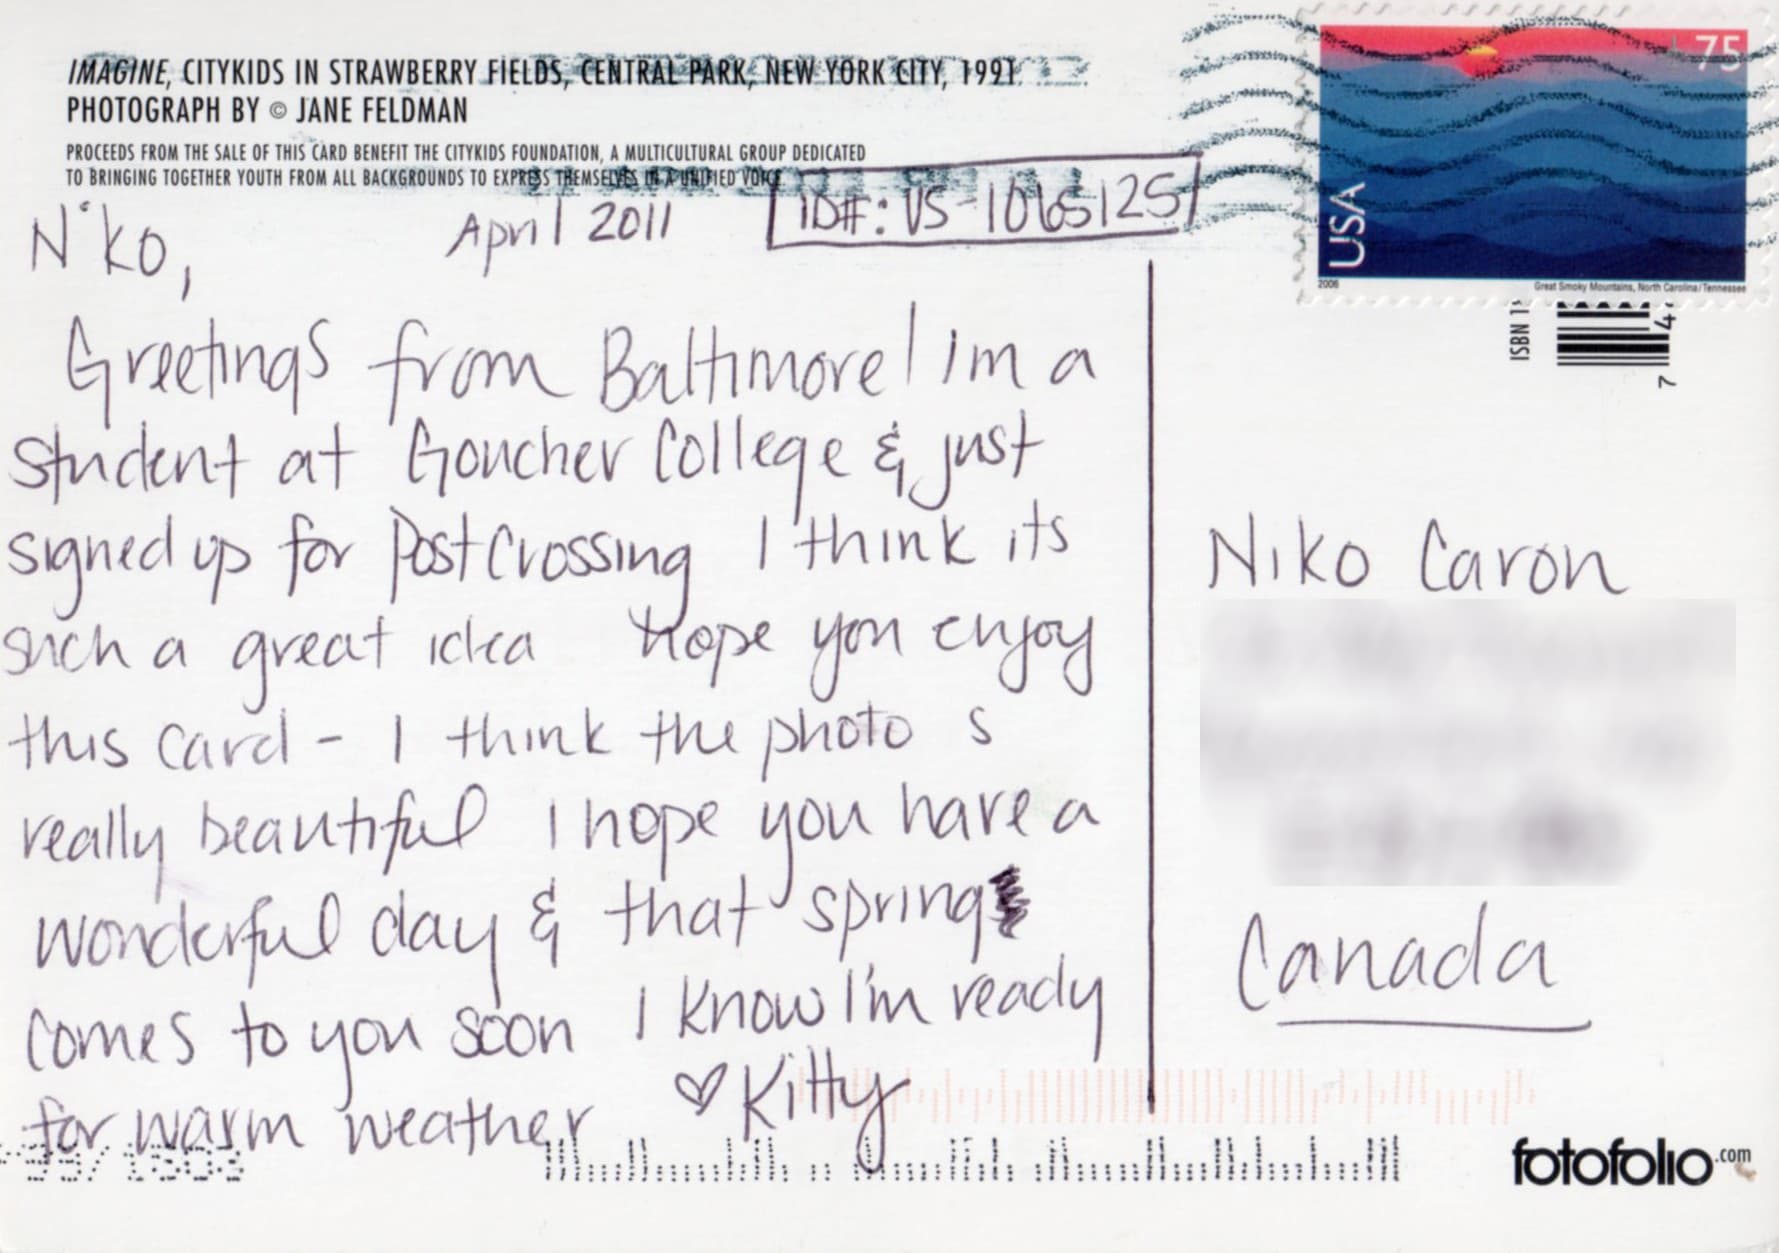 IMAGINE, CITYKIDS IN STRAWBERRY FIELDS, CENTRAL PARK, NEW YORK CITY, 1991.
PHOTOGRAPH BY © JANE FELDMAN
PROCEEDS FROM THE SALE OF THIS CARD BENEFIT THE CITYKIDS FOUNDATION, A MULTICULTURAL GROUP DEDICATED
TO BRINGING TOGETHER YOUTH FROM ALL BACKGROUNDS TO EXPRESS THEMSELVES IN A UNIFIED VOICE
75
USA
2006
Great Smoky Mountains, North Carolina/Tennessee
ISBN
ID#: US-1065125
April 2011
Niko,
Greetings from Baltimore! im a
student at Goucher College & just
signed up for Postcrossing I think its
such a great idea hope you enjoy
this card - I think the photo s
really beautiful I hope you have a
wonderful day & that spring
comes to you soon I know I'm ready
for warm weather ♡ Kitty
Niko Caron
Canada
fotofolio.com